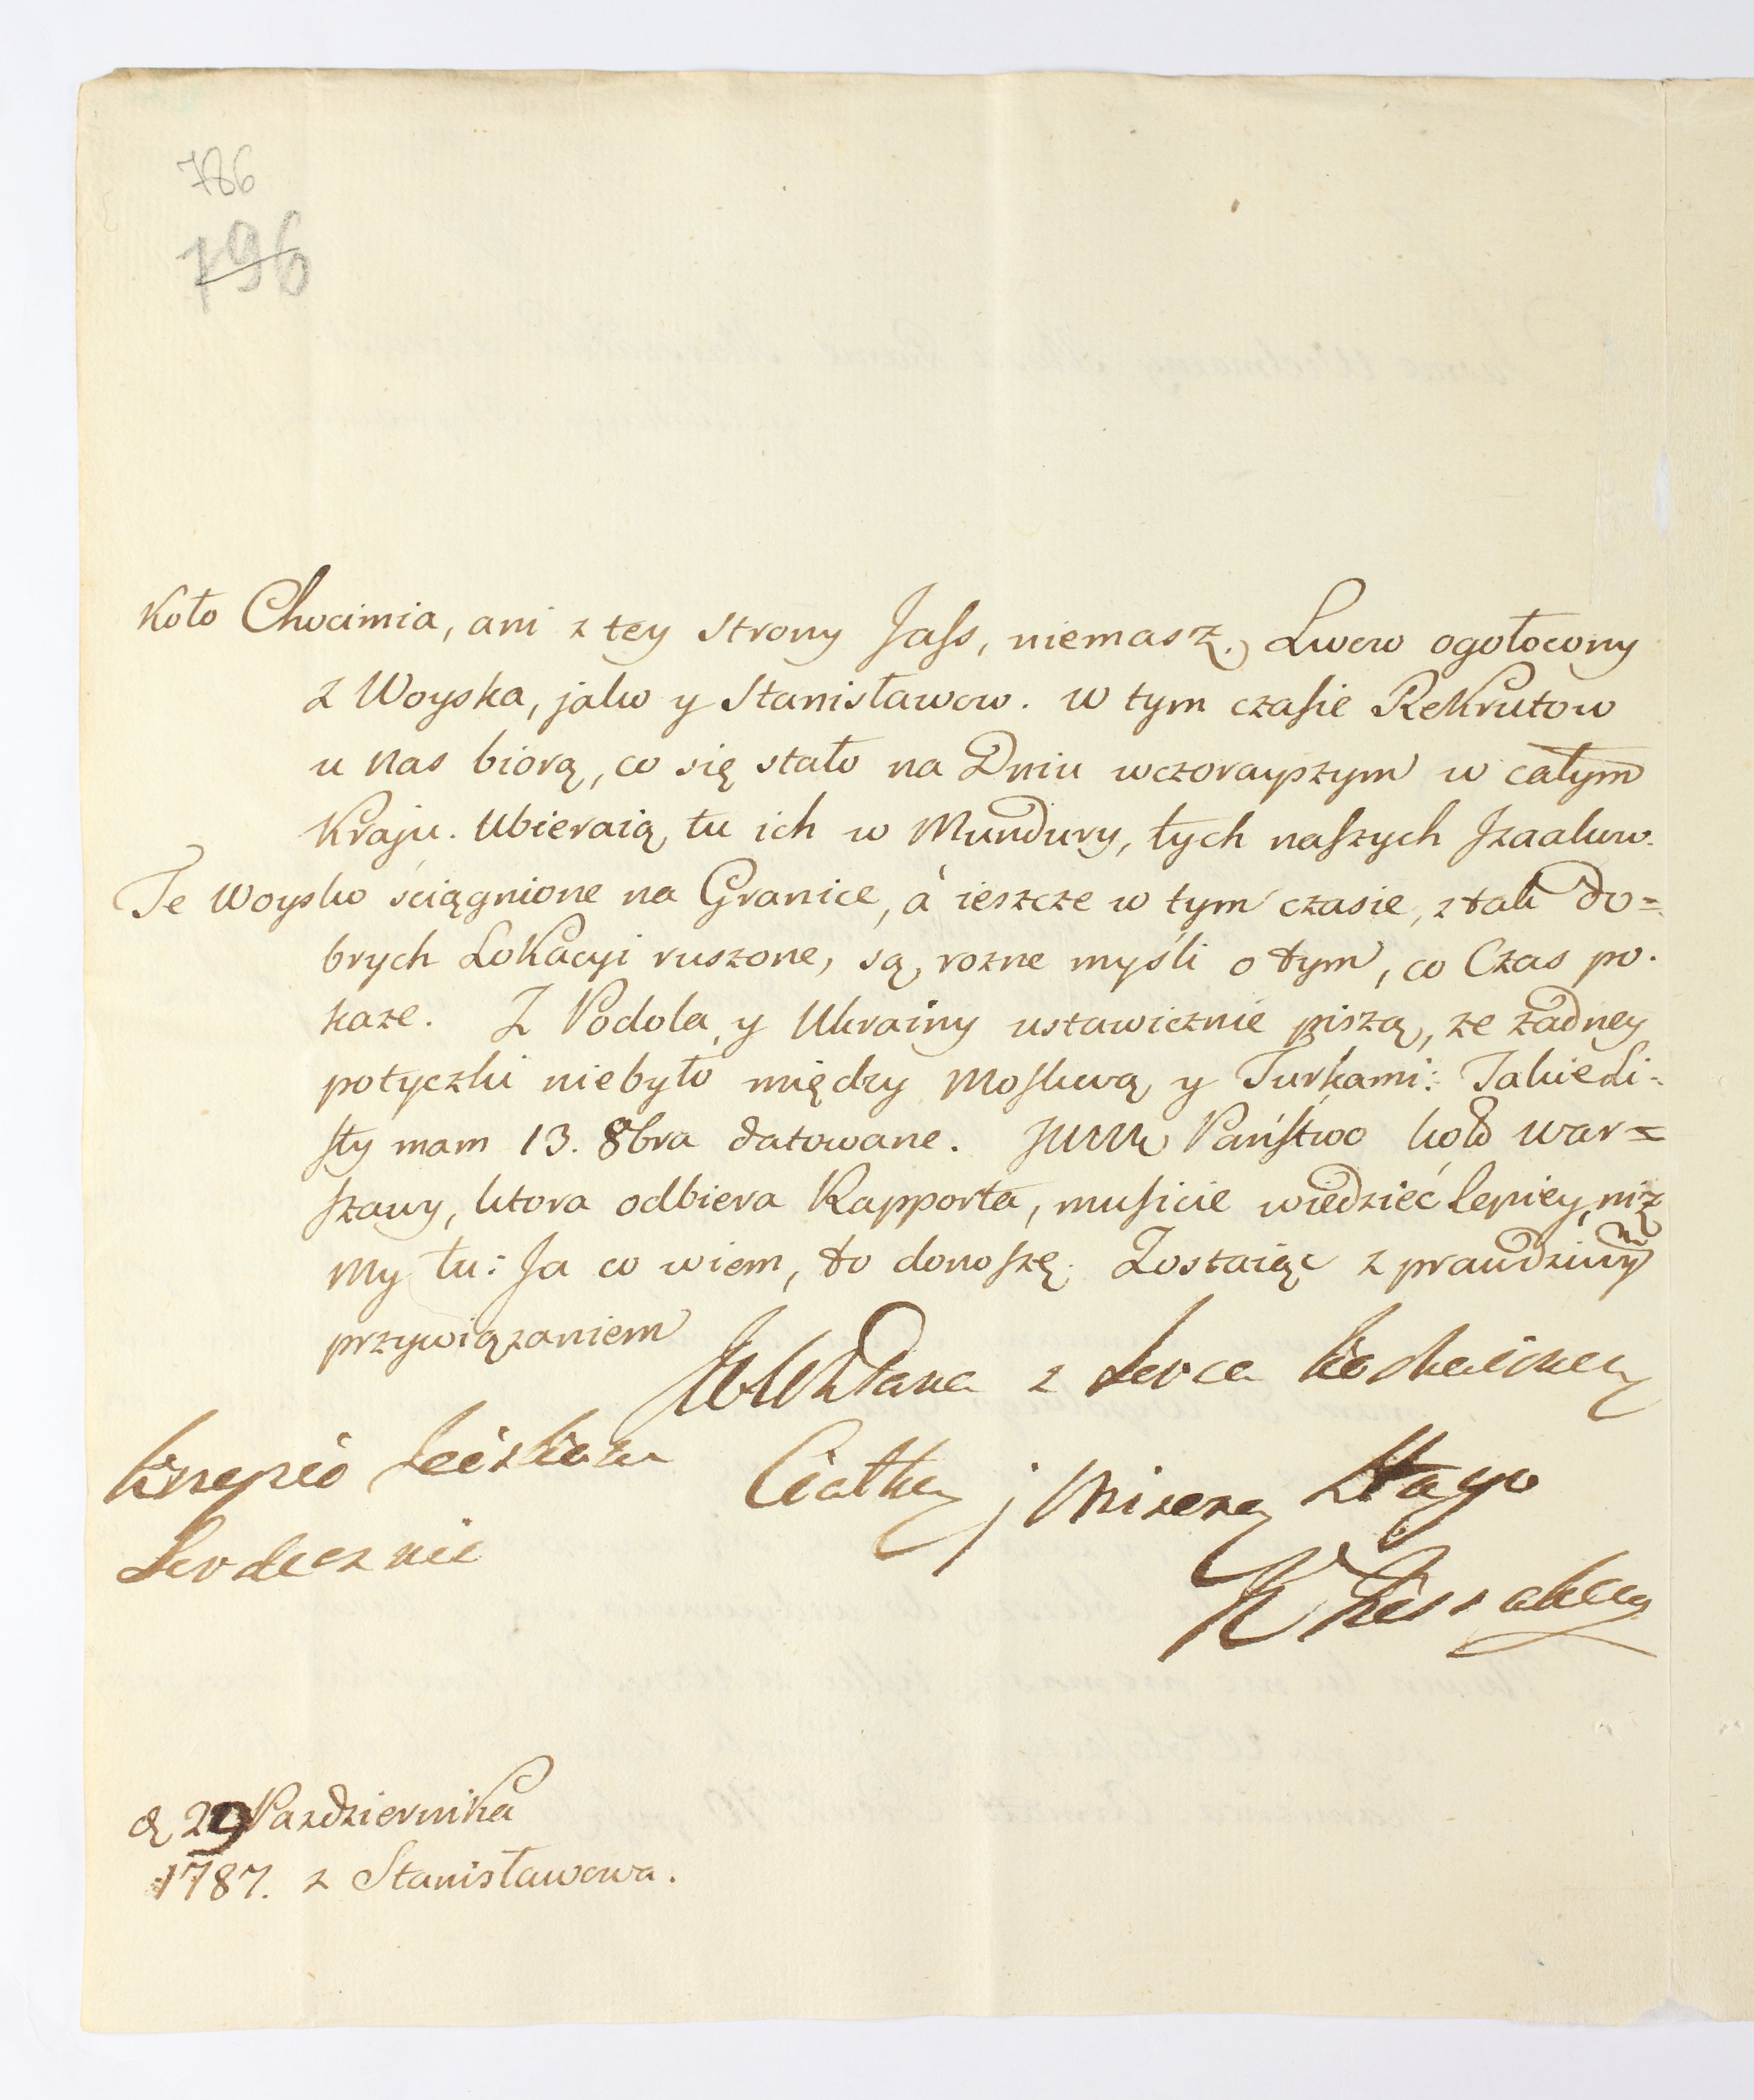 786
796
Koło Chocimia, ani z tey strony Jass, niemasz. Lwow ogołocony
z Woyska, jako y Stanisławow. w tym czasie Rekrutow
u nas biorą, co się stało na Dniu wczorayszym w całym
Kraju. Ubieraią tu ich w Mundury, tych naszych
Te Woysko ściągnione na Granice, à ieszcze w tym czasie, z tak do=
brych Lokacyi ruszone, są rozne myśli o tym, co Czas po.
kaze. Z Podola y Ukrainy ustawicznie piszą, ze żadney
potyczki niebyło między Moskwą y Turkami: Takie Li=
sty mam 13. 8bra datowane. Państwo koło War=
szawy, ktora odbiera Rapporta, musicie wiedzieć lepiey, niz
my tu: Ja co wiem, to donoszę. Zostaiąc z prawdziwym
przywiązaniem
z serca kochaiącą
Ciotką j nizszą Sługą
Serdecznie
K
d 29 Pazdziernika
1787. z Stanisławowa.